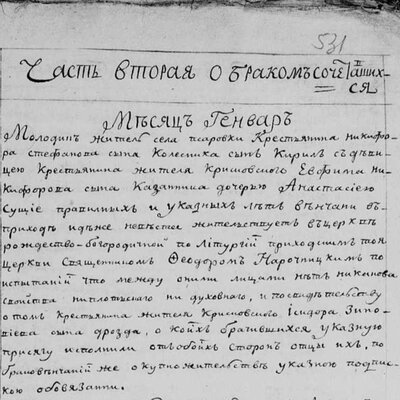 531
Часть вторая о бракомъ сочетавших-
ся
Мѣсяцъ Генваръ
Молодикъ житель села псаровки Крестьянина никифо-
ра стефанова сына Колесника сынъ Кирилъ съ дѣви-
цею Крестьянина жителя Евфима ни-
кифорова сына дочерью Анастасіею
Сущіе правилныхъ и указныхъ лѣтъ вѣнчани въ
приходѣ идѣже невѣста жителствуетъ въ церквѣ
рождество-богородичной по літургіи приходскимъ тоя
церкви священникомъ Феодоромъ Нарочицкимъ по
испытаніи что между оними лицами нѣтъ никакова
свойства ни плотскаго ни духовнаго, и по свидѣтельству
о томъ крестьянина жителя Ісидора Зино-
віева сына дрозда, о коихъ бравшихся указную
присягу исполнили отъ обоихъ сторонъ отцы ихъ, по
браковѣнчаніи же о купножительствѣ указною подпис-
кою обовязани.